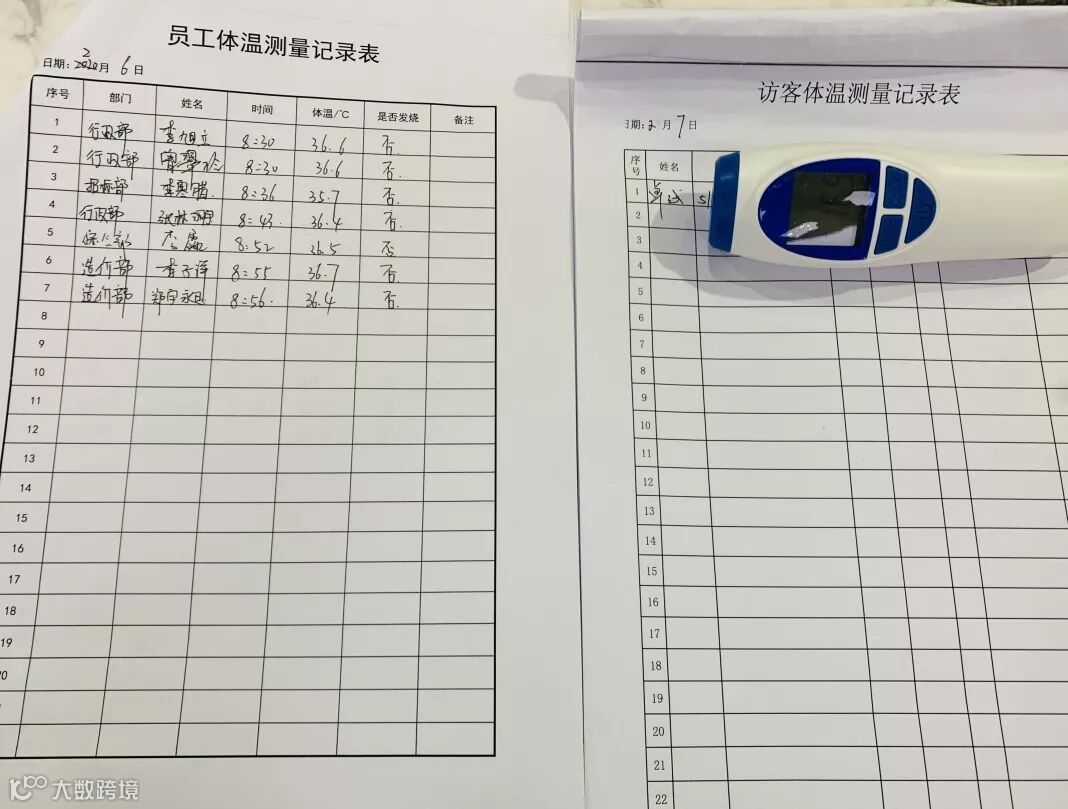 员工体温测量记录表
日期: 2 月 6 日
序号 部门 姓名 时间 体温/°C 是否发烧 备注
1 行政部 李旭立 8:30 36.6 否
2 行政部 8:30 36.6 否.
3 招标部 8:36 35.7 否.
4 行政部 8:43. 36.4 否.
5 8:52 36.5 否
6 造价部 李子洋 8:55 36.7 否.
7 造价部 8:56. 36.4 否.
8
9
10
11
12
13
14
15
16
17
18
19
访客体温测量记录表
日期: 2 月 7 日
序号 姓名
1
2
3
4
5
6
7
8
9
10
11
12
13
14
15
16
17
18
19
20
21
22
大数跨境